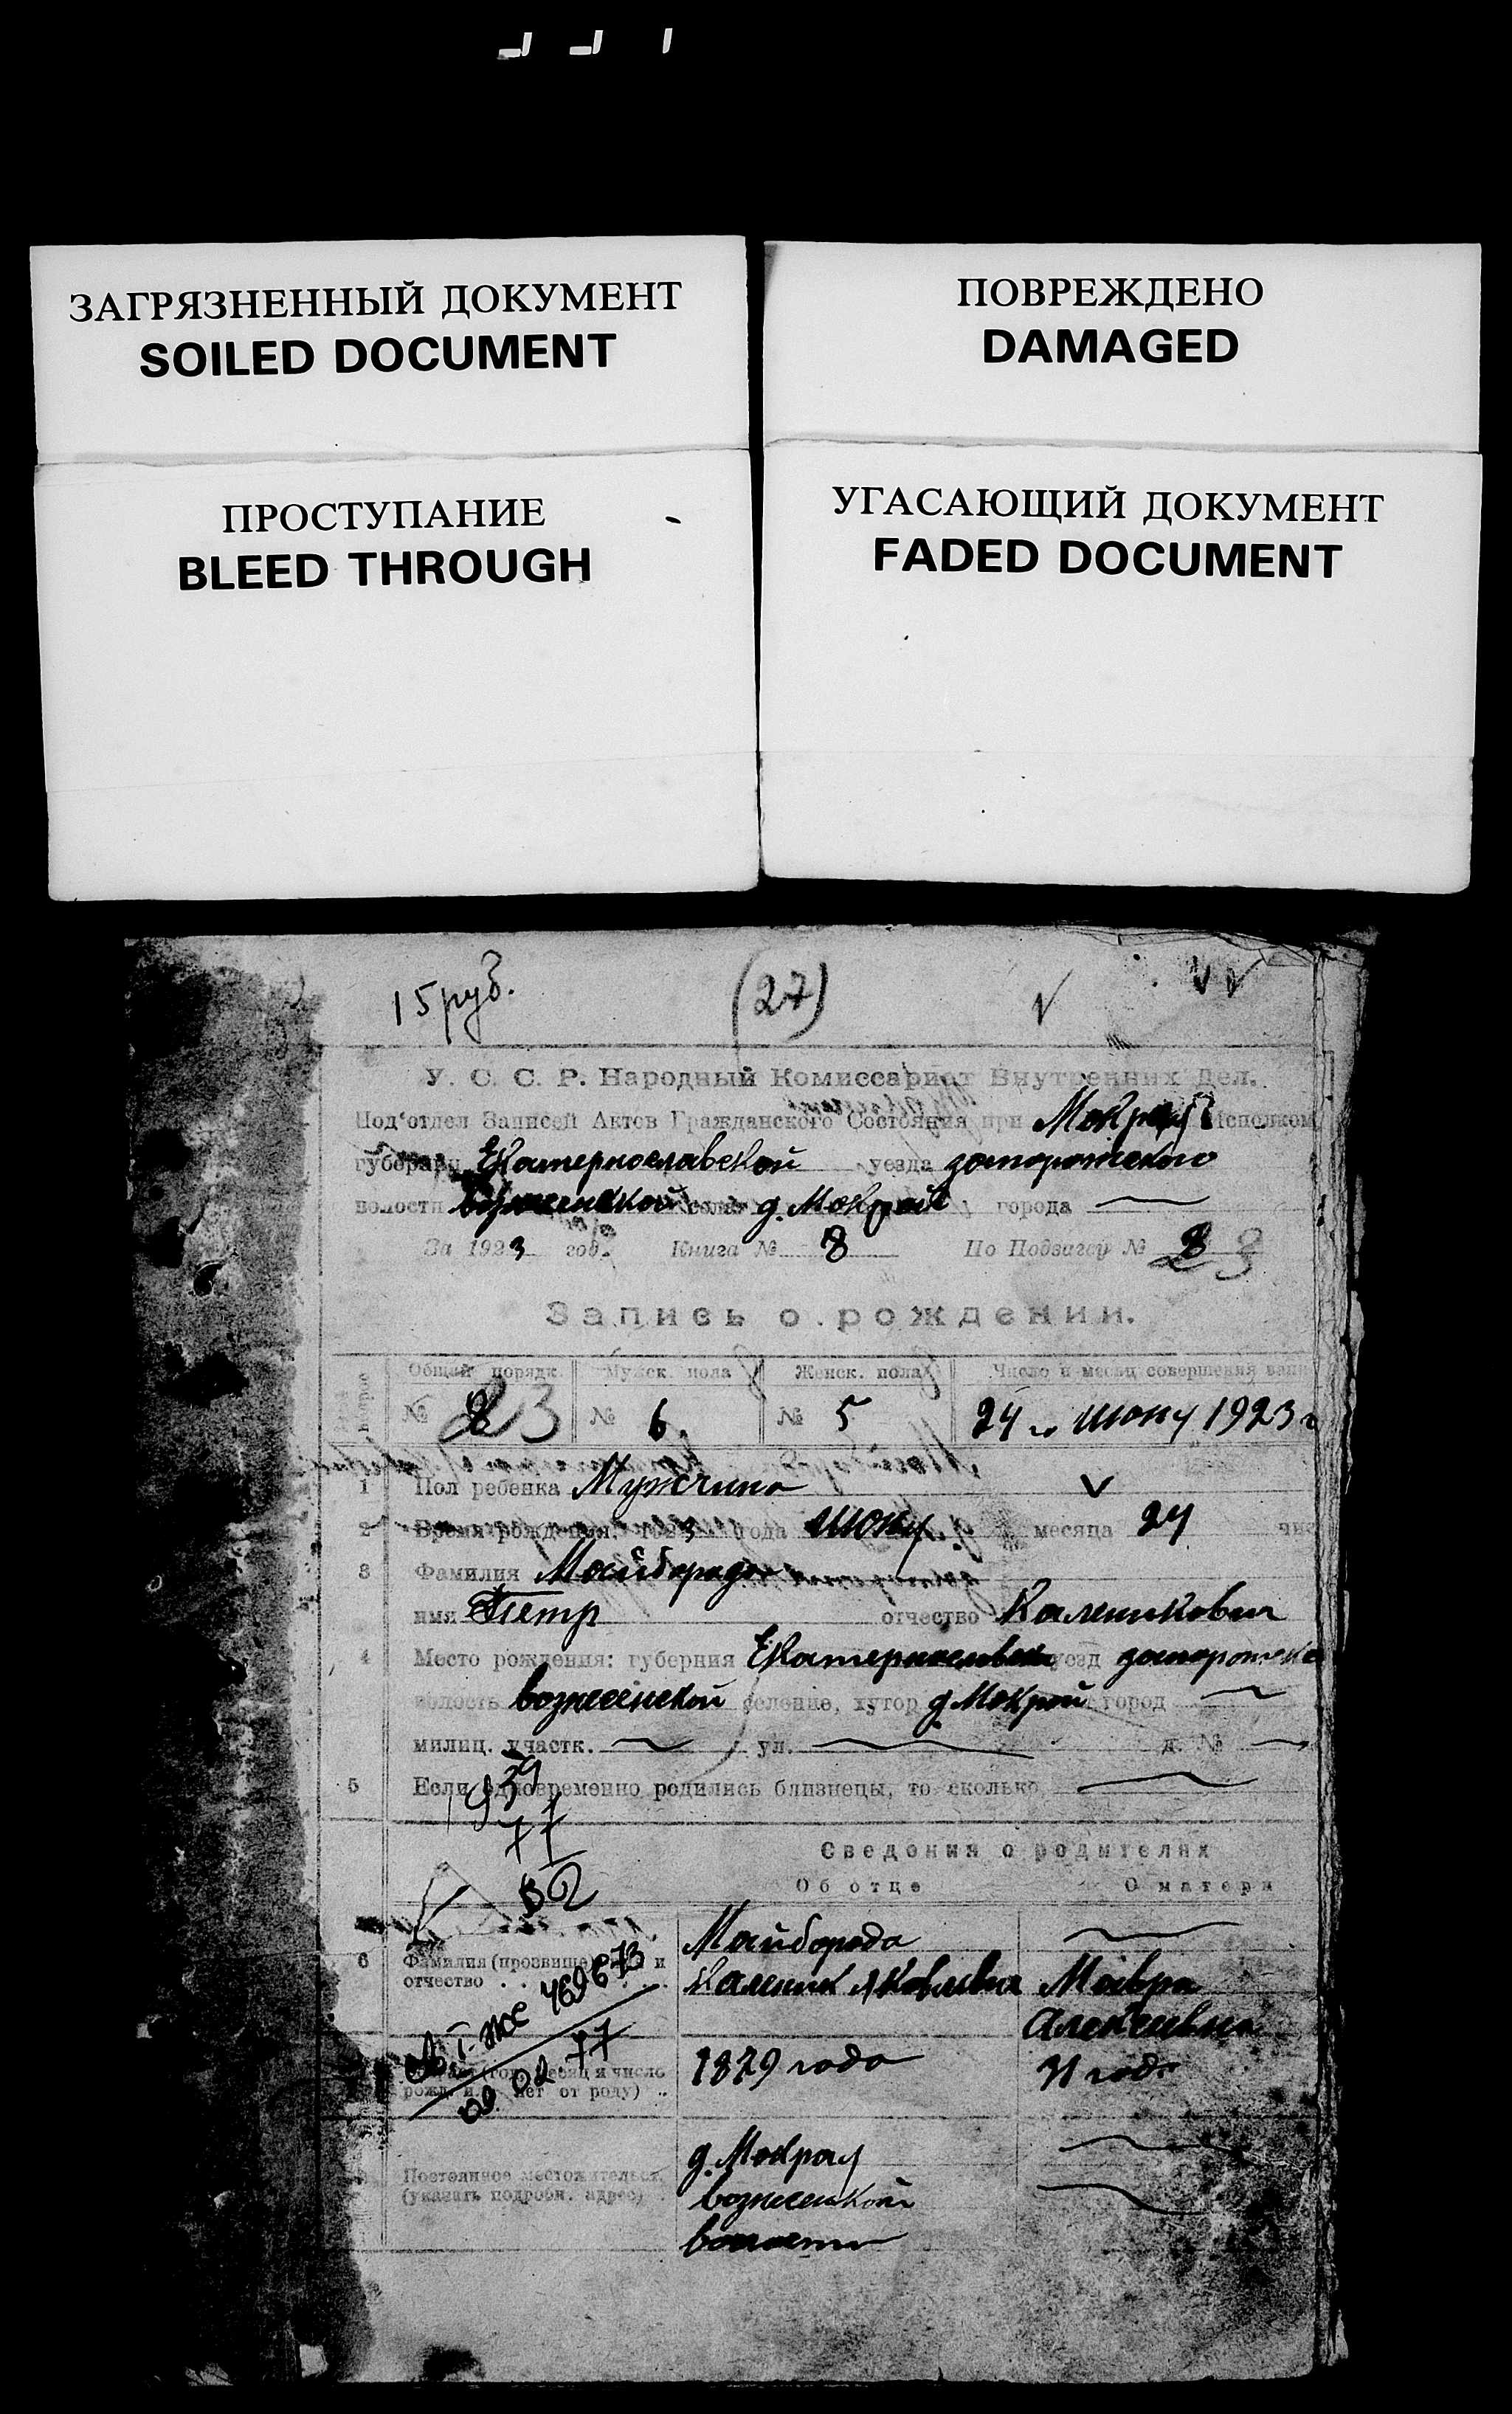 ЗАГРЯЗНЕННЫЙ ДОКУМЕНТ
SOILED DOCUMENT
ПОВРЕЖДЕНО
DAMAGED
ПРОСТУПАНИЕ
BLEED THROUGH
УГАСАЮЩИЙ ДОКУМЕНТ
FADED DOCUMENT
15 руб. (27)
У. С. С. Р. Народный Комиссариат Внутренних Дел.
Под'отдел Записей Актов Гражданского Состояния при Исполком
губернии Екатеринославской уезда запорожского
волости д. Мокрой города
За 1923 год. Книга № 8 По Подвигов № 23
Запись о рождении.
Общий порядк. Мужск. пола Женск. пола Число и месяц совершения запи
№ 23 № 6. № 5 24 го июня 1923 г
1 Пол ребенка Мужчина
2 Время рождения: 1923 года июня месяца 24 чис
3 Фамилия Майборода
имя Петр отчество Каленикович
4 Место рождения: губерния уезд запорожско
волость вознесенской селение, хутор д. Мокрой город
милиц. участк. ул. д. №
5 Если одновременно родились близнецы, то сколько
1939
77
Сведения о родителях
Об отце О матери
6 Фамилия (прозвище) и отчество
Майборода
Каленик Яковлевич Мавра
Алексеевна
469673
09 02.77
месяц и число
рожд. и лет от роду)
1879 года 31 год
Постоянное местожительст.
(указать подробн. адрес)
д. Мокрая
вознесенской
волости